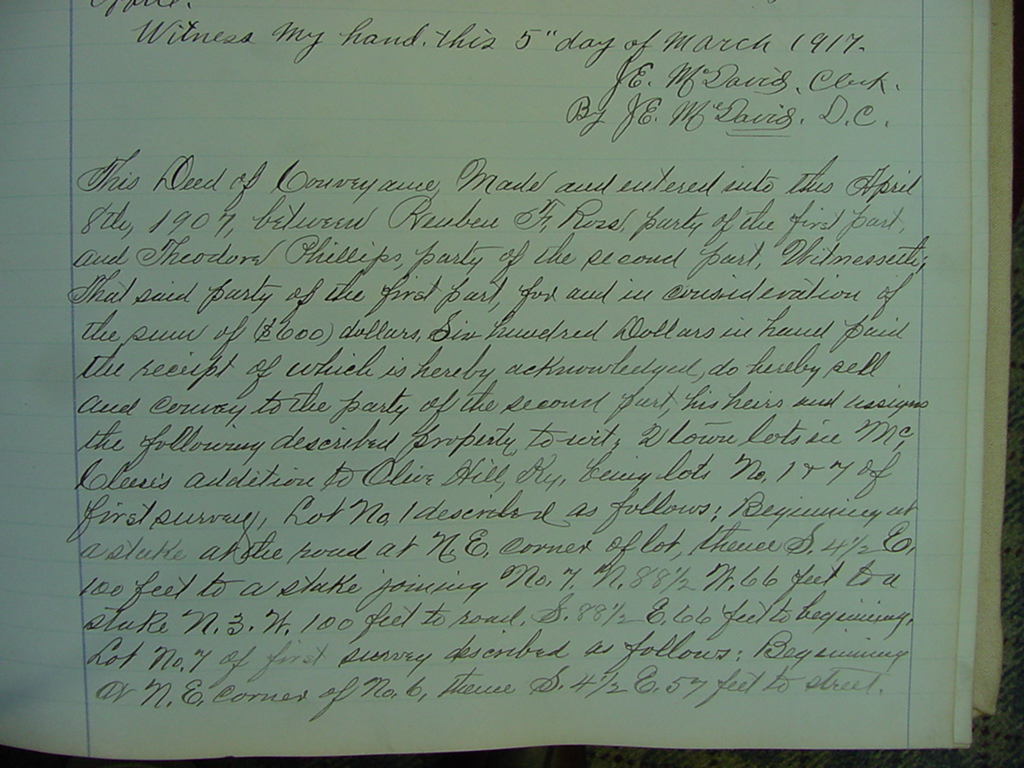 Witness my hand. this 5" day of March 1917.
J.E. McDavid. Clerk.
By J.E. McDavid. D.C.
This Deed of Conveyance, Made and entered into this April
8th, 1907, between Reuben F. Ross, party of the first part,
and Theodore Phillips, party of the second part, Witnesseth;
That said party of the first part, for and in consideration of
the sum of ($600) dollars, Six hundred Dollars in hand paid
the receipt of which is hereby acknowledged, do hereby sell
and convey to the party of the second part, his heirs and assigns
the following described property, to wit, 2 town lots in Mc
addition to Olive Hill, Ky, being lots No, 1 & 7 of
first survey, Lot No, 1 described as follows; Beginning at
a stake at the road at N.E. corner of lot, thence S. 4 1/2 E.
100 feet to a stake joining No. 7, N. 88 1/2 W. 66 feet to a
stake N. 3. W. 100 feet to road, S. 88 1/2 E. 66 feet to beginning.
Lot No, 7 of first survey discribed as follows; Beginning
at N.E. corner of No. 6, thence S. 4 1/2 E. 57 feet to street.